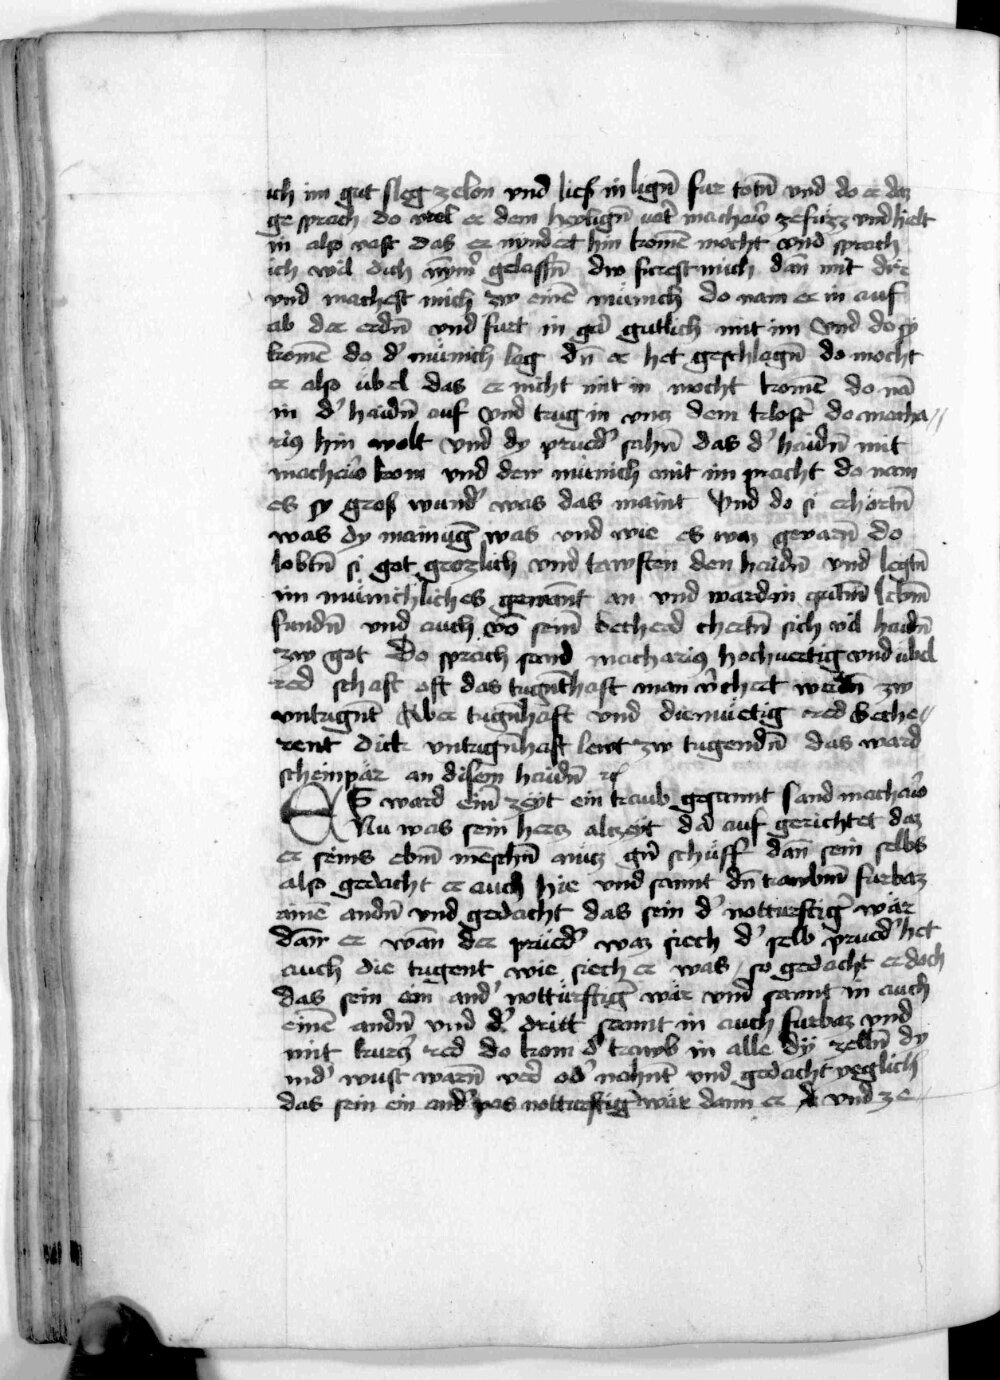 ich im gut sleg zelon vnd liesß in lign̄ fur totn̄ vnd do er daz
gesprach do viel er dem heyligen̄ vat̕ machario zefuͤzz vnd hielt
in also vast das er nyndert hin komē mocht vnd sprach
ich wil dich nym̄̕ gelassn̄ dw furest mich dan̄ mit dir
vnd machest mich zw einē muͤnich do nam er in auf
ab der erdn̄ vnd furt in gar gutlich mit im Vnd do sy
komē do d̕ muͤnich lag dn̄ er het geschlagn̄ do mocht
er also ubel das er nicht mit in mocht komē do nā
in d̕ haidn̄ auf vnd trug in vntz dem klost̕ do macha//
rius hin wolt vnd dy prued̕ sahn̄ das d̕ haidn̄ mit
machario kom vnd den muͤnich mit im pracht do nam
es sy groß wund̕ was das maint Vnd do si erhortn̄
was dy mainūg was vnd wie es waz gevarn̄ do
lobtn̄ si got grozlich vnd tawften den haidn̄ vnd legtn̄
im muͤnichliches gewant an vnd ward in gutm̄ lebm̄
fundn̄ vnd auch vō seim̄ becherd chertn̄ sich vil haidn̄
zw got Do sprach sand macharius hochuertig vnd ubel
red schaft oft das tugn̄thaft man v̕chert werdn̄ zw
vntugn̄t Aber tugn̄thaft vnd diemuͤetig red beche//
rent dick vntugn̄haft lewt zw tugendn̄ das ward
scheinpaͤr an disem haidn̄ rc̄
ES ward ein̄ zeyt ein traub gesannt sand machario
Nu waz sein hertz altzeit dā auf gerichtet daz
er seins ebm̄ menschn̄ nutz gn̄ schuͤff dan̄ sein selbs
also gedacht er auch hie vnd sannt dn̄ trawbm̄ furbaz
ainē andn̄ vnd gedacht das sein d̕ notturftig̕ waͤr
dan̄ er wan̄ der prued̕ waz siech d̕ selb prued̕ het
auch die tugent wie siech er was so gedacht er doch
das sein ein and̕ notturftig̕ waͤr vnd sannt in auch
einē andn̄ vnd d̕ dritt sannt in auch furbaz vnd
mit kurtz̕ red do kom d̕ trawb in alle dy zelln̄ dy
in d̕ wust warn̄ verr od̕ nahnt vnd gedacht yeglich̕
das sein ein and̕ pas notturftig̕ waͤr dann er vnd ze//